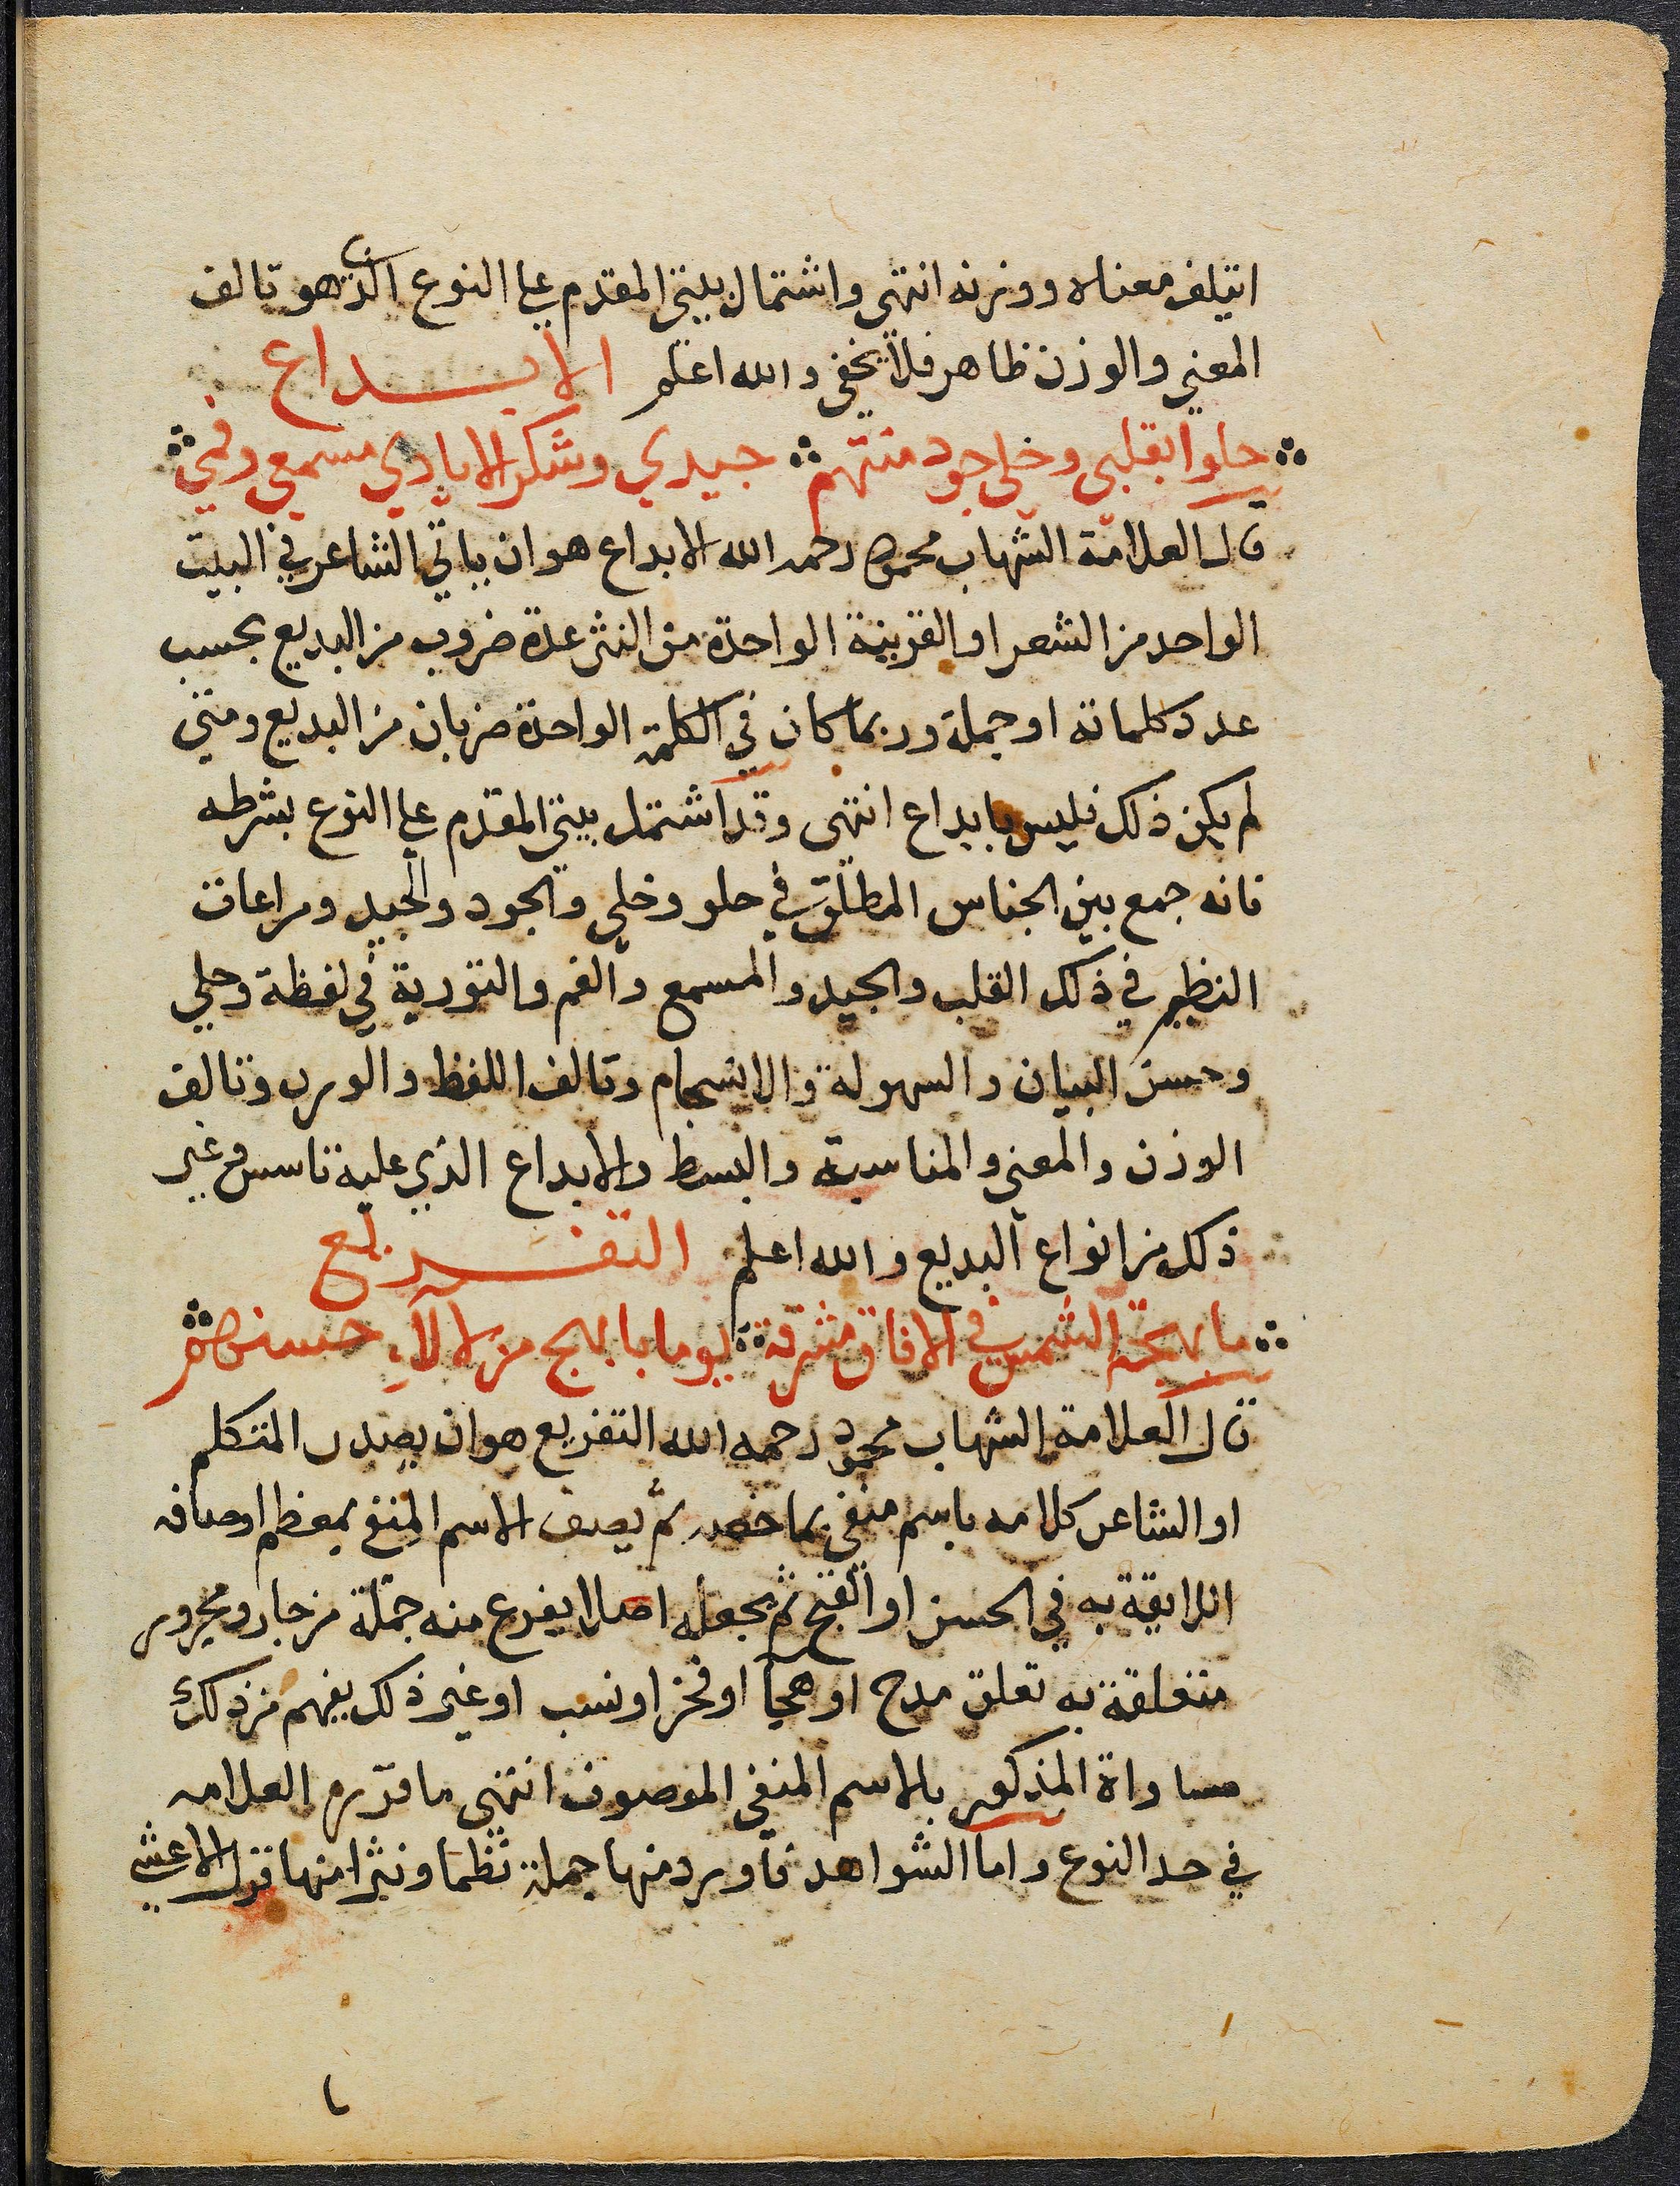 ايتلف معناه ووزنه انتهى واشتمال بيتي المقدم على النوع الذي هو تالف
المعني والوزن ظاهر فلا يخفي والله اعلم الابداع
حلوا بقلبي وحلي جود منتهم جيدي وشكر الايادي مسمعي وفمي
قال العلامة الشهاب محمود رحمه الله الابداع هو ان ياتي الشاعر في البيت
الواحد من الشعر او القرينة الواحدة من النثر عدة ضروب من البديع بحسب
عدد كلماته او جملة وربما كان في الكلمة الواحدة ضربان من البديع ومتي
لم يكن ذلك فليس بابداع انتهى وقد اشتمل بيتي المقدم على النوع بشرطه
فانه جمع بين الجناس المطلق في حلو وحلي والجود والجيد ومراعات
النظير في ذكر القلب والجيد والمسمع والفم والتورية في لفظة وحلي
وحسن البيان والسهولة والانسجام وتالف اللفظ والوزن وتالف
الوزن والمعني والمناسبة والبسط والابداع الذي عليه تاسس وغير
ذلك من انواع البديع والله اعلم التفريع
ما بهجة الشمس في الافاق مشرقة يوما بابهج من لالاء حسنهم
قال العلامة الشهاب محمود رحمه الله التفريع هو ان يصدر المتكلم
او الشاعر كلامه باسم منفي بما خصه ثم يصف الاسم المنفي بمعظم اوصافه
اللايقة به في الحسن او القبح ثم يجعله اصلا يفرع منه جملة من جار ومجرور
متعلقة به تعلق مدح او هجا او فخر او نسب او غير ذلك يفهم من ذلك
مساواة المذكور بالاسم المنفي الموصوف انتهى ما قرره العلامه
في حد النوع واما الشواهد فاورد منها جملة نظما ونثرا منها قول الاعشي